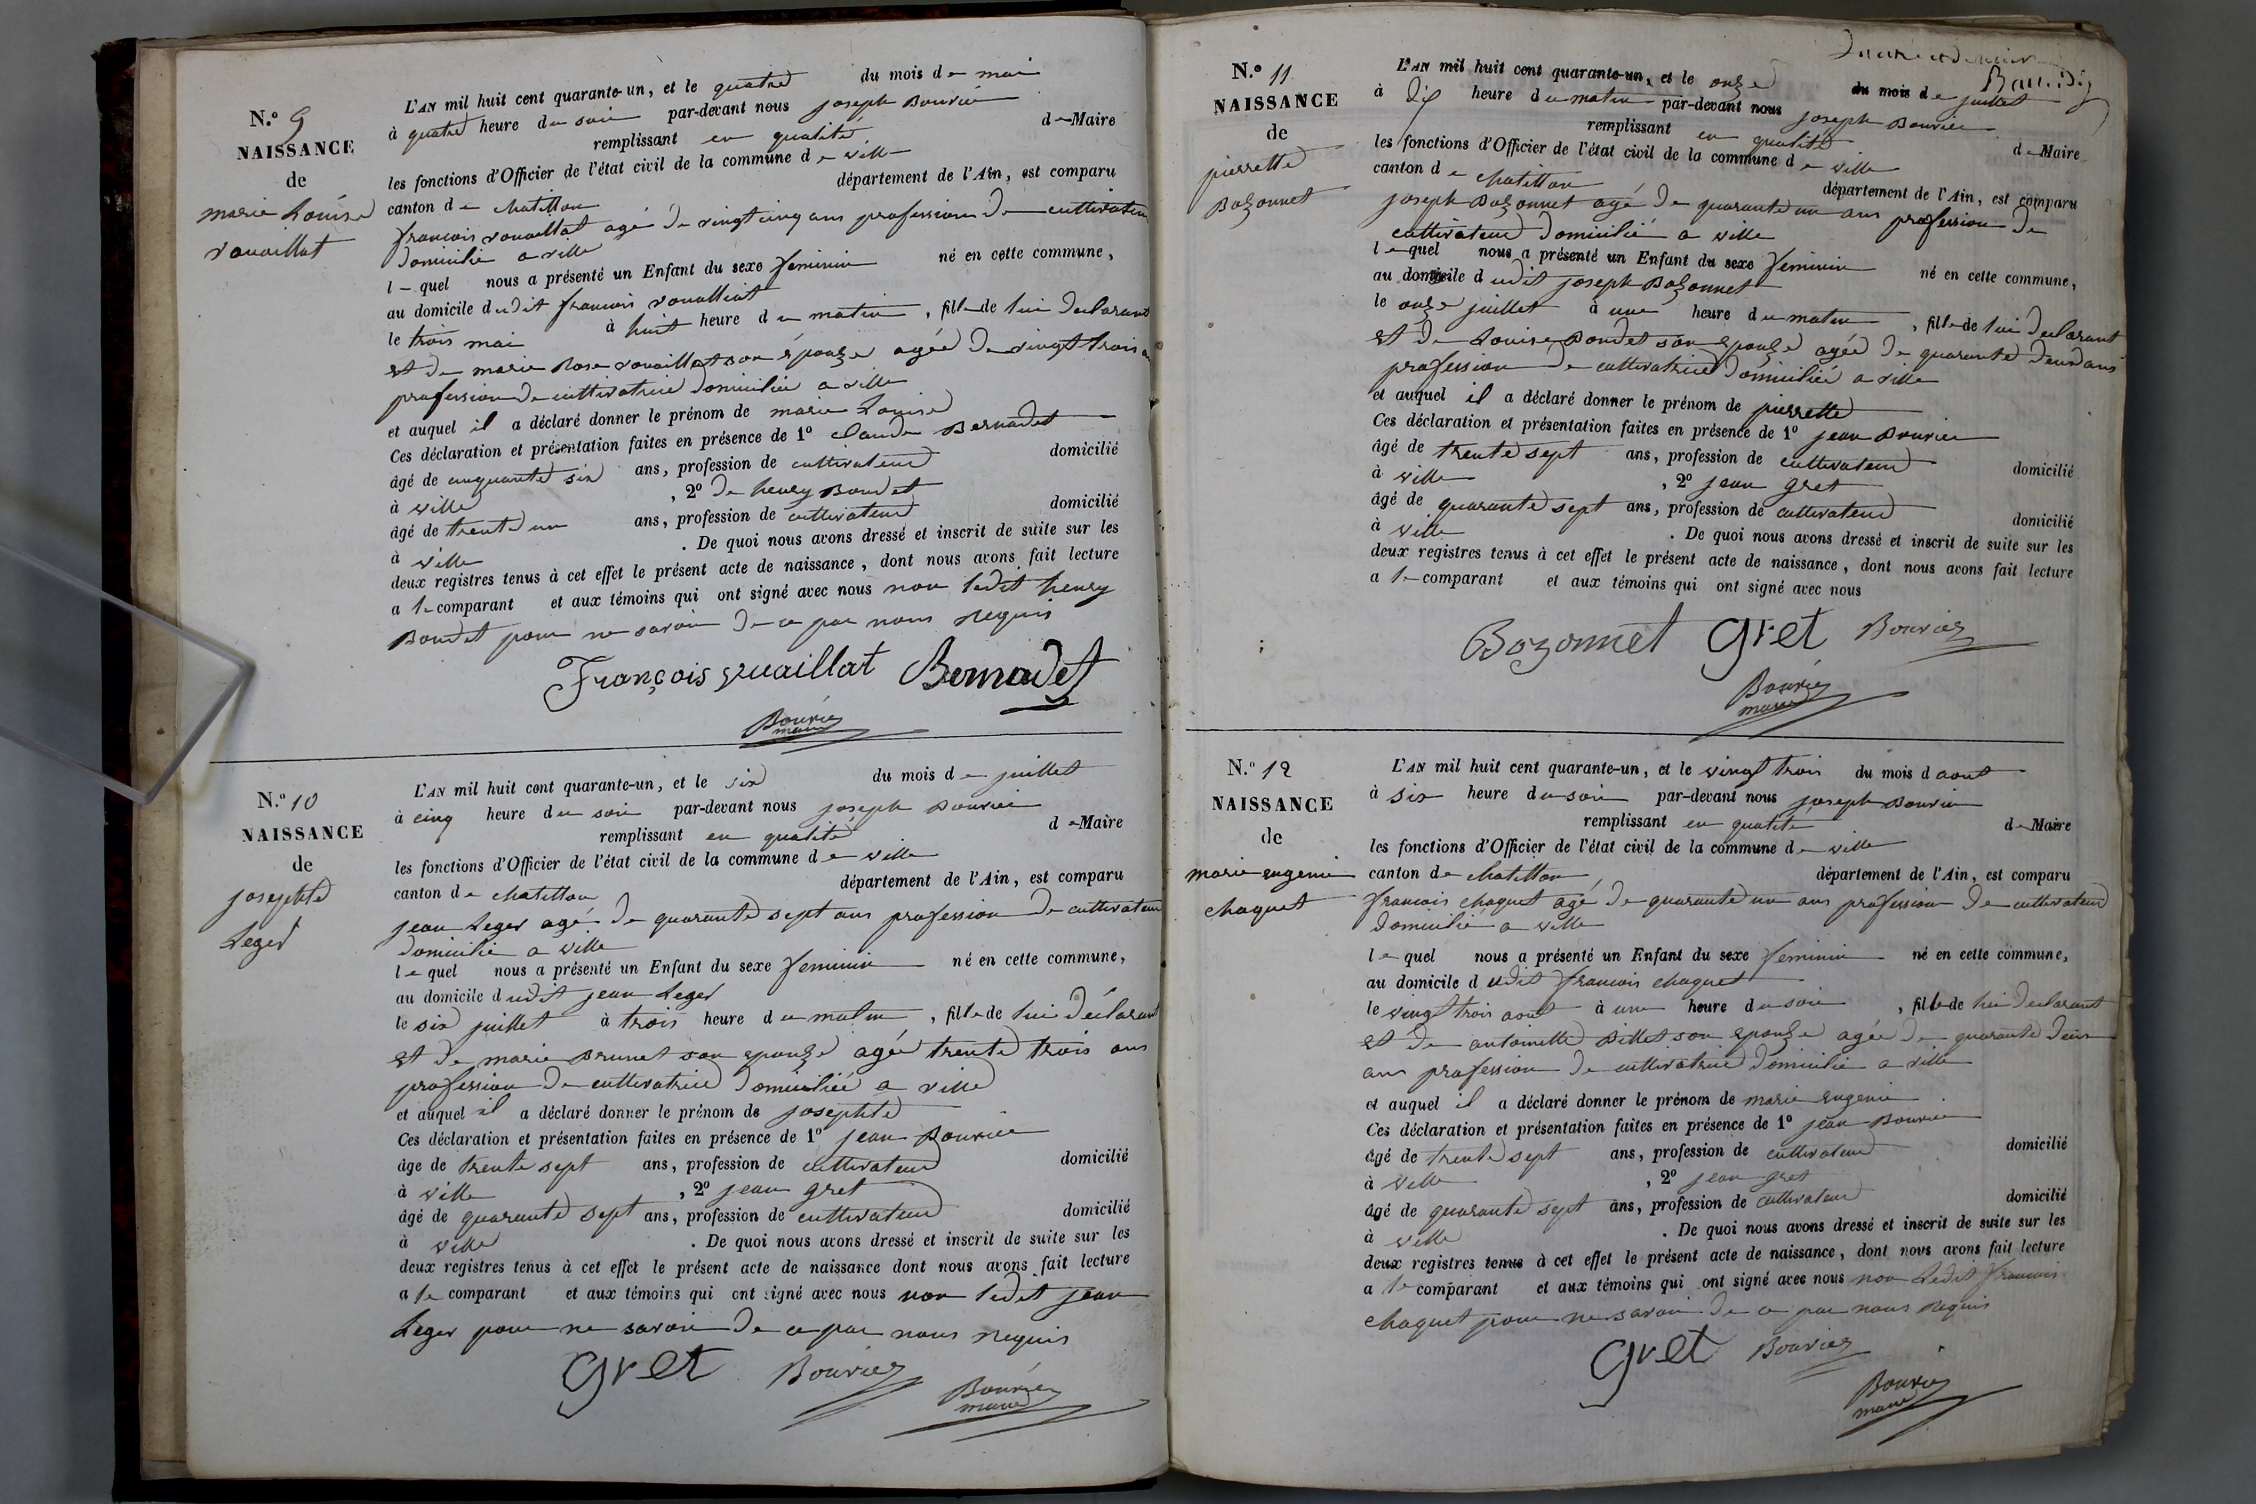 N.º 9
NAISSANCE
de
marie Louise
vouaillat
L'AN mil huit cent quarante-un, et le quatre du mois de mai
à quatre heure du soir par-devant nous joseph Bouvier
remplissant en qualité de Maire
les fonctions d'Officier de l'état civil de la commune de ville
canton de chatillon département de l'Ain, est comparu
francois vouaillat agé de vingt cinq ans profession de cultivateur
domicilié a ville
lequel nous a présenté un Enfant du sexe feminin né en cette commune,
au domicile dudit francois vouailliat
le trois mai à huit heure du matin, fille de lui declarant
et de marie Rose vouaillat son épouze agée de vingt trois
profession de cultivatrice domiciliée a ville
et auquel il a déclaré donner le prénom de marie Louise
Ces déclaration et présentation faites en présence de 1º claude Bernadet
âgé de cinquante six ans, profession de cultivateur domicilié
à ville, 2º de henry Boudet
âgé de trente un ans, profession de cultivateur domicilié
à ville. De quoi nous avons dressé et inscrit de suite sur les
deux registres tenus à cet effet le présent acte de naissance, dont nous avons fait lecture
a le comparant et aux témoins qui ont signé avec nous non ledit henry
Boudet pour ne savoir de ce par nous requis
François vuaillat Bernadet
Bouvier
maire
N.º 10
NAISSANCE
de
josephte
Leger
L'AN mil huit cent quarante-un, et le six du mois de juillet
à cinq heure du soir par-devant nous joseph Bouvier
remplissant en qualité de Maire
les fonctions d'Officier de l'état civil de la commune de ville
canton de chatillon département de l'Ain, est comparu
jean Leger agé de quarante sept ans profession de cultivateur
domicilié a ville
lequel nous a présenté un Enfant du sexe feminin né en cette commune,
au domicile dudit jean Leger
le six juillet à trois heure du matin, fille de lui déclarant
et de marie Brunet son epouze agée trente trois ans
profession de cultivatrice domiciliée a ville
et auquel il a déclaré donner le prénom de josephte
Ces déclaration et présentation faites en présence de 1º jean Bouvier
âge de trente sept ans, profession de cultivateur domicilié
à ville, 2º jean gret
âgé de quarante sept ans, profession de cultivateur domicilié
à ville. De quoi nous avons dressé et inscrit de suite sur les
deux registres tenus à cet effet le présent acte de naissance dont nous avons fait lecture
a le comparant et aux témoins qui ont signé avec nous non ledit jean
Leger pour ne savoir de ce par nous requis
gret Bouvier
Bouvier
maire
N.º 11
NAISSANCE
de
pierrette
Bozonnet
L'AN mil huit cent quarante-un, et le onze du mois de juillet
à dix heure du matin par-devant nous joseph Bouvier
remplissant en qualité de Maire
les fonctions d'Officier de l'état civil de la commune de ville
canton de chatillon département de l'Ain, est comparu
joseph Bozonnet agé de quarante un ans profession de
cultivateur domicilié a ville
lequel nous a présenté un Enfant du sexe feminin né en cette commune,
au domicile dudit joseph Bozonnet
le onze juillet à une heure du matin, fille de lui declarant
et de Louise Boudet son epouze agée de quarante deux ans
profession de cultivatrice domiciliée a ville
et auquel il a déclaré donner le prénom de pierrette
Ces déclaration et présentation faites en présence de 1º jean Bouvier
âgé de trente sept ans, profession de cultivateur domicilié
à ville, 2º jean gret
âgé de quarante sept ans, profession de cultivateur domicilié
à ville. De quoi nous avons dressé et inscrit de suite sur les
deux registres tenus à cet effet le présent acte de naissance, dont nous avons fait lecture
a le comparant et aux témoins qui ont signé avec nous
Bozonnet gret Bouvier
Bouvier
maire
N.º 12
NAISSANCE
de
marie eugenie
chaquet
L'AN mil huit cent quarante-un, et le vingt trois du mois d aout
à six heure du soir par-devant nous joseph Bouvier
remplissant en qualité de Maire
les fonctions d'Officier de l'état civil de la commune de ville
canton de chatillon département de l'Ain, est comparu
francois chaquet agé de quarante un ans profession de cultivateur
domicilié a ville
lequel nous a présenté un Enfant du sexe feminin né en cette commune,
au domicile dudit francois chaquet
le vingt trois aout à une heure du soir, fille de lui declarant
et de antoinette Billet son epouze agée de quarante deux
ans profession de cultivatrice domicilie a ville
et auquel il a déclaré donner le prénom de marie eugenie
Ces déclaration et présentation faites en présence de 1º jean Bouvier
âgé de trente sept ans, profession de cultivateur domicilié
à ville, 2º jean gret
âgé de quarante sept ans, profession de cultivateur domicilié
à ville. De quoi nous avons dressé et inscrit de suite sur les
deux registres tenus à cet effet le présent acte de naissance, dont nous avons fait lecture
a le comparant et aux témoins qui ont signé avec nous non ledit francois
chaquet pour ne savoir de ce par nous requis
gret Bouvier
Bouvier
maire